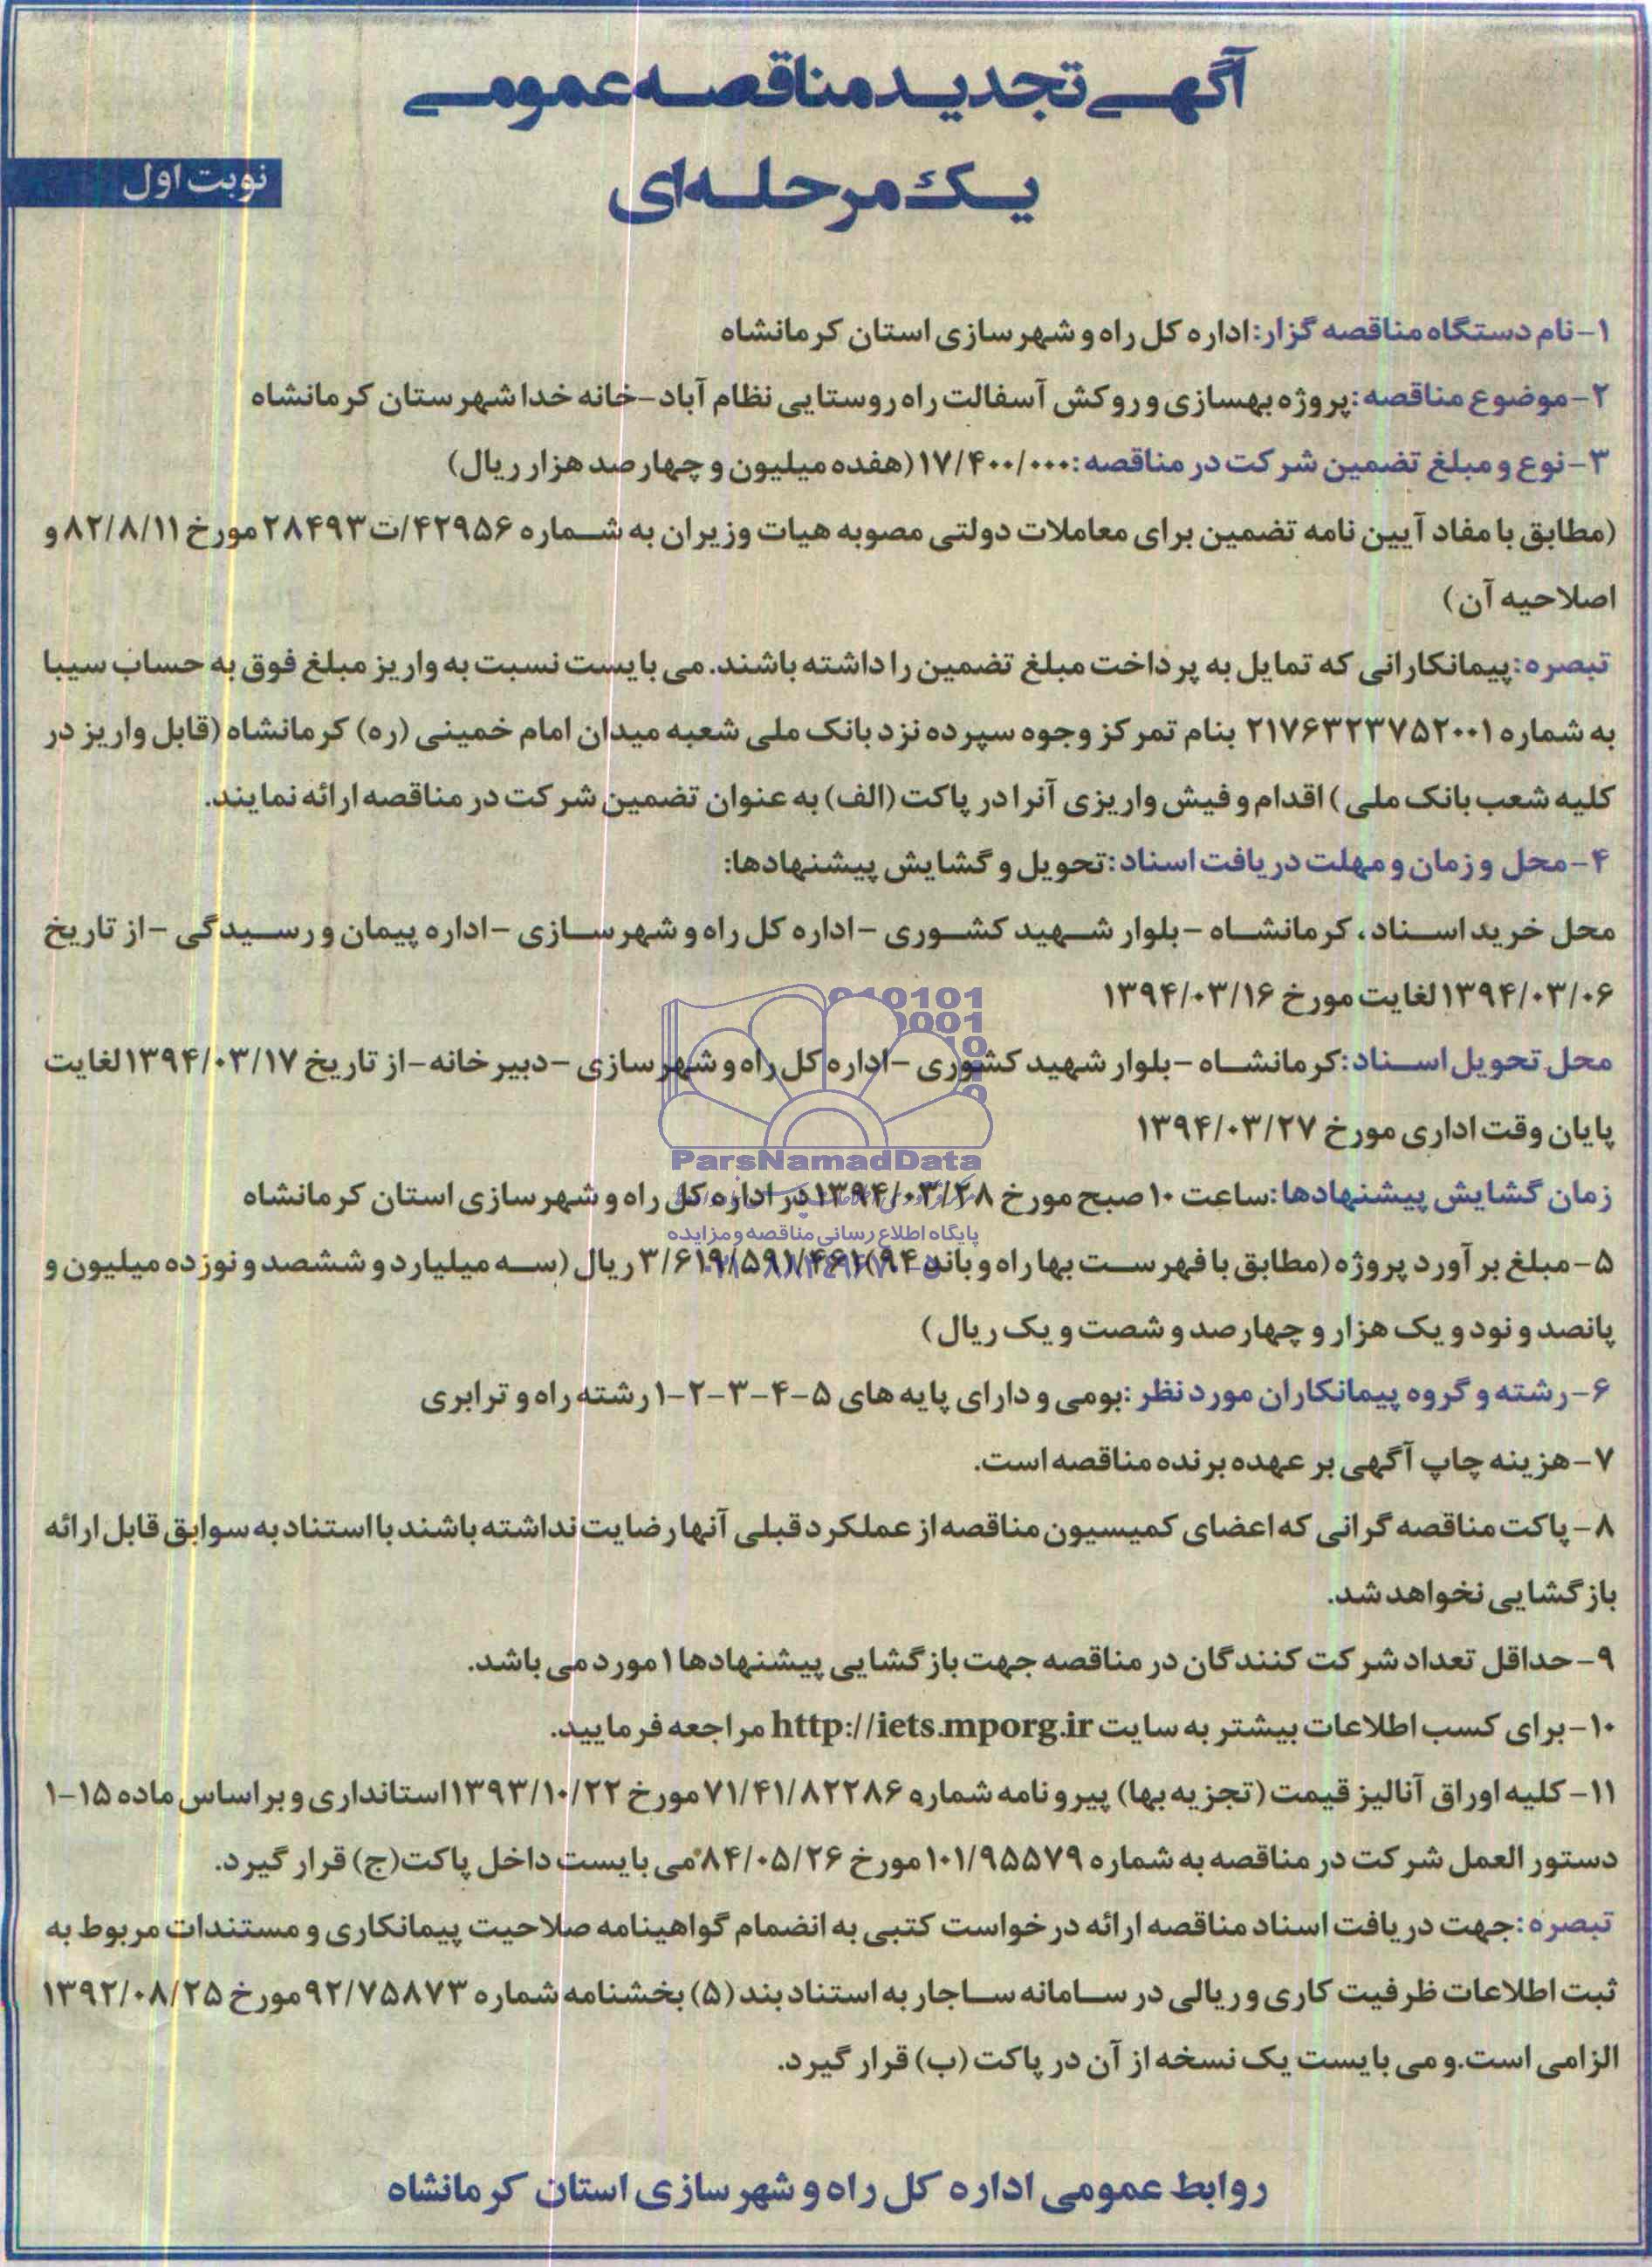 آگهی تجدید مناقصه عمومی
یک مرحله ای
نوبت اول
۱-نام دستگاه مناقصه گزار:اداره کل راه و شهرسازی استان کرمانشاه
۲-موضوع مناقصه:پروژه بهسازی و روکش آسفالت راه روستایی نظام آباد-خانه خدا شهرستان کرمانشاه
۳-نوع و مبلغ تضمین شرکت در مناقصه:۱۷/۴۰۰/۰۰۰(هفده میلیون و چهارصد هزار ریال)
(مطابق با مفاد آیین نامه تضمین برای معاملات دولتی مصوبه هیات وزیران به شماره ۴۲۹۵۶/ت۲۸۴۹۳مورخ ۸۲/۸/۱۱ و
اصلاحیه آن)
تبصره:پیمانکارانی که تمایل به پرداخت مبلغ تضمین را داشته باشند. می بایست نسبت به واریز مبلغ فوق به حساب سیبا
به شماره ۲۱۷۶۳۲۳۷۵۲۰۰۱ بنام تمرکز وجوه سپرده نزد بانک ملی شعبه میدان امام خمینی (ره) کرمانشاه (قابل واریز در
کلیه شعب بانک ملی) اقدام و فیش واریزی آنرا در پاکت (الف) به عنوان تضمین شرکت در مناقصه ارائه نمایند.
۴-محل و زمان و مهلت دریافت اسناد:تحویل و گشایش پیشنهادها:
محل خرید اسناد، کرمانشاه -بلوار شهید کشوری -اداره کل راه و شهرسازی -اداره پیمان و رسیدگی -از تاریخ
۱۳۹۴/۰۳/۰۶لغایت مورخ ۱۳۹۴/۰۳/۱۶
محل تحویل اسناد:کرمانشاه -بلوار شهید کشوری -اداره کل راه و شهرسازی -دبیرخانه-از تاریخ ۱۳۹۴/۰۳/۱۷لغایت
پایان وقت اداری مورخ ۱۳۹۴/۰۳/۲۷
ParsNamadData
زمان گشایش پیشنهادها:ساعت ۱۰صبح مورخ ۱۳۹۴/۰۳/۲۸در اداره کل راه و شهرسازی استان کرمانشاه
پایگاه اطلاع رسانی مناقصه و مزایده
۵-مبلغ برآورد پروژه (مطابق با فهرست بها راه و باند ۹۴)۳/۶۱۹/۵۹۱/۴۶۱ریال (سه میلیارد و ششصد و نوزده میلیون و
پانصد و نود و یک هزار و چهارصد و شصت و یک ریال)
۶-رشته و گروه پیمانکاران مورد نظر:بومی و دارای پایه های ۵-۴-۳-۲-۱رشته راه و ترابری
۷-هزینه چاپ آگهی بر عهده برنده مناقصه است.
۸-پاکت مناقصه گرانی که اعضای کمیسیون مناقصه از عملکرد قبلی آنها رضایت نداشته باشند با استناد به سوابق قابل ارائه
بازگشایی نخواهد شد.
۹-حداقل تعداد شرکت کنندگان در مناقصه جهت بازگشایی پیشنهادها ۱مورد می باشد.
۱۰-برای کسب اطلاعات بیشتر به سایت http://iets.mporg.ir مراجعه فرمایید.
۱۱-کلیه اوراق آنالیز قیمت (تجزیه بها) پیرو نامه شماره ۷۱/۴۱/۸۲۲۸۶مورخ ۱۳۹۳/۱۰/۲۲استانداری و بر اساس ماده ۱۵-۱
دستور العمل شرکت در مناقصه به شماره ۱۰۱/۹۵۵۷۹مورخ ۸۴/۰۵/۲۶می بایست داخل پاکت(ج) قرار گیرد.
تبصره:جهت دریافت اسناد مناقصه ارائه درخواست کتبی به انضمام گواهینامه صلاحیت پیمانکاری و مستندات مربوط به
ثبت اطلاعات ظرفیت کاری و ریالی در سامانه ساجار به استناد بند (۵) بخشنامه شماره ۹۲/۷۵۸۷۳مورخ ۱۳۹۲/۰۸/۲۵
الزامی است.و می بایست یک نسخه از آن در پاکت (ب) قرار گیرد.
روابط عمومی اداره کل راه و شهرسازی استان کرمانشاه